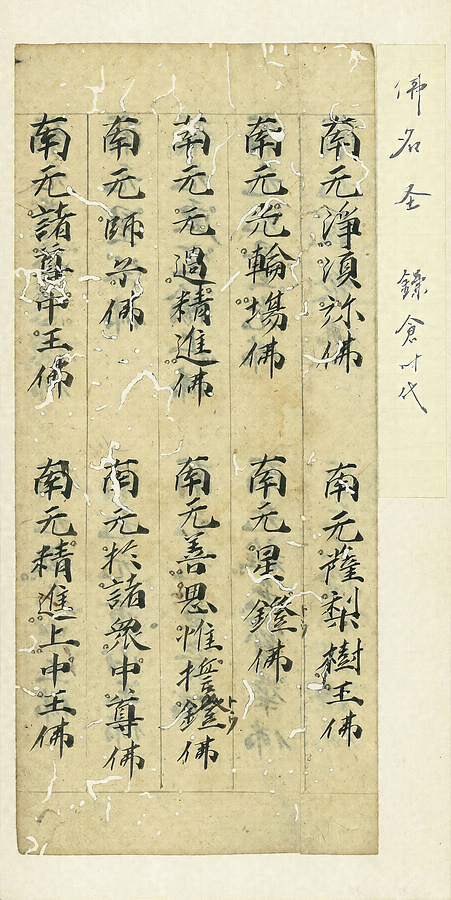 佛名圣 鎌倉时代
南无淨須弥佛 南无薩梨樹王佛
南无光輪場佛 南无星鐙佛
南无无過精進佛 南无善思惟誓鐙佛
トウ
南无師子佛 南无於諸衆中尊佛
南无諸尊中王佛 南无精進上中王佛